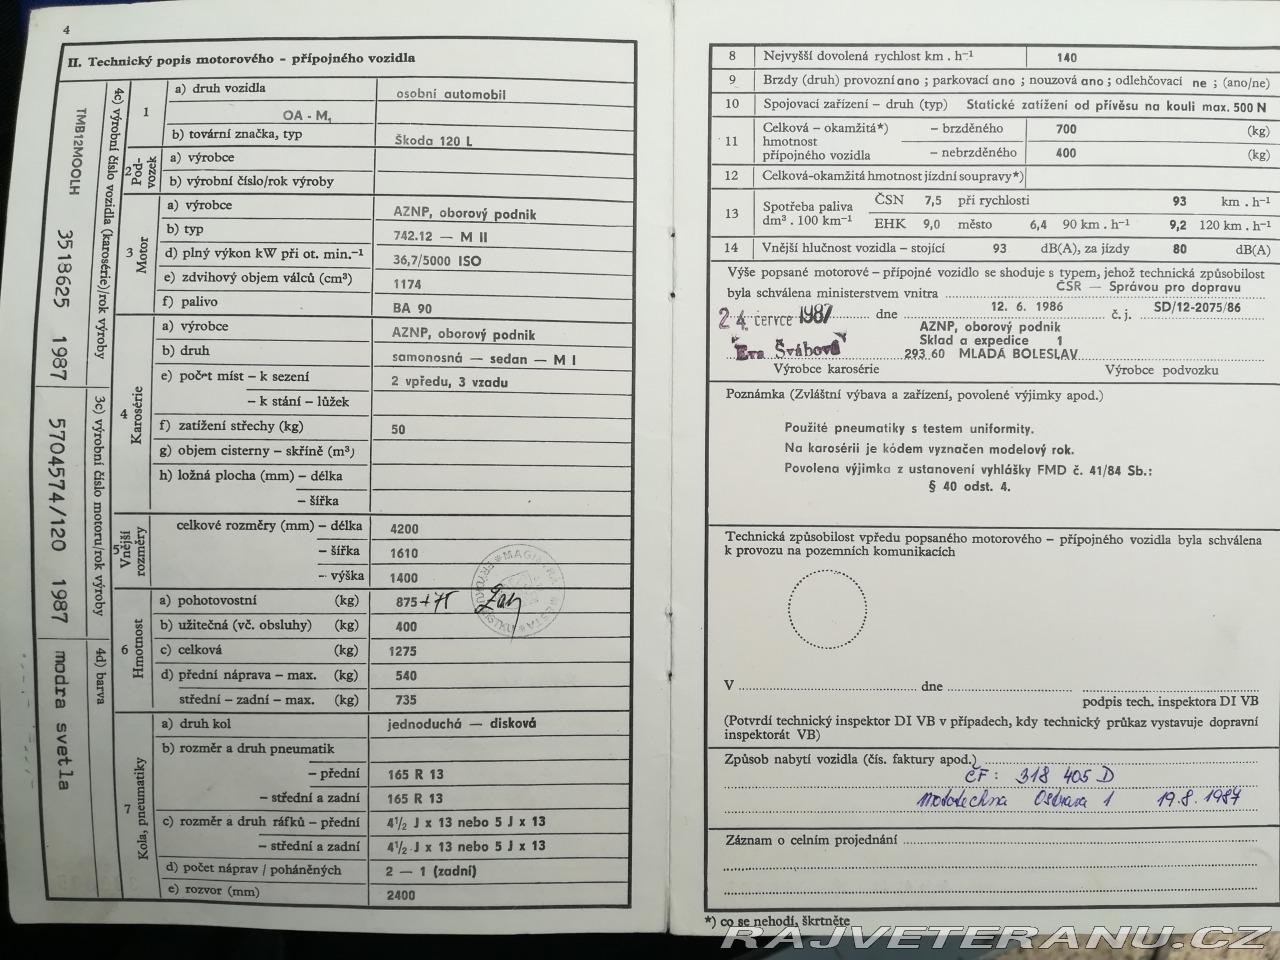 4
II. Technický popis motorového – přípojného vozidla
4c) výrobní číslo vozidla (karosérie)/rok výroby
TMB12MOOLH 3518625 1987
3c) výrobní číslo motoru/rok výroby
5704574/120 1987
4d) barva
modra svetla
1
a) druh vozidla
osobní automobil
OA - M1
b) tovární značka, typ
Škoda 120 L
2 Pod-vozek
a) výrobce
b) výrobní číslo/rok výroby
3 Motor
a) výrobce
AZNP, oborový podnik
b) typ
742.12 — M II
d) plný výkon kW při ot. min.⁻¹
36,7/5000 ISO
e) zdvihový objem válců (cm³)
1174
f) palivo
BA 90
4 Karosérie
a) výrobce
AZNP, oborový podnik
b) druh
samonosná — sedan — M I
e) počet míst – k sezení
2 vpředu, 3 vzadu
– k stání – lůžek
f) zatížení střechy (kg)
50
g) objem cisterny – skříně (m³)
h) ložná plocha (mm) – délka
– šířka
5 Vnější rozměry
celkové rozměry (mm) – délka
4200
– šířka
1610
– výška
1400
6 Hmotnost
a) pohotovostní (kg)
875
b) užitečná (vč. obsluhy) (kg)
400
c) celková (kg)
1275
d) přední náprava – max. (kg)
540
střední – zadní – max. (kg)
735
7 Kola, pneumatiky
a) druh kol
jednoduchá — disková
b) rozměr a druh pneumatik
– přední
165 R 13
– střední a zadní
165 R 13
c) rozměr a druh ráfků – přední
4½ J x 13 nebo 5 J x 13
– střední a zadní
4½ J x 13 nebo 5 J x 13
d) počet náprav / poháněných
2 — 1 (zadní)
e) rozvor (mm)
2400
8 Nejvyšší dovolená rychlost km . h⁻¹ 140
9 Brzdy (druh) provozní ano ; parkovací ano ; nouzová ano ; odlehčovací ne ; (ano/ne)
10 Spojovací zařízení – druh (typ) Statické zatížení od přívěsu na kouli max. 500 N
11 Celková – okamžitá*) hmotnost přípojného vozidla
– brzděného 700 (kg)
– nebrzděného 400 (kg)
12 Celková-okamžitá hmotnost jízdní soupravy*)
13 Spotřeba paliva dm³ . 100 km⁻¹
ČSN 7,5 při rychlosti 93 km . h⁻¹
EHK 9,0 město 6,4 90 km . h⁻¹ 9,2 120 km . h⁻¹
14 Vnější hlučnost vozidla – stojící 93 dB(A), za jízdy 80 dB(A)
Výše popsané motorové – přípojné vozidlo se shoduje s typem, jehož technická způsobilost
byla schválena ministerstvem vnitra ČSR — Správou pro dopravu
24. července 1987 dne 12. 6. 1986 č. j. SD/12-2075/86
AZNP, oborový podnik
Eva Švábová Sklad a expedice 1
293 60 MLADÁ BOLESLAV
Výrobce karosérie Výrobce podvozku
Poznámka (Zvláštní výbava a zařízení, povolené výjimky apod.)
Použité pneumatiky s testem uniformity.
Na karosérii je kódem vyznačen modelový rok.
Povolena výjimka z ustanovení vyhlášky FMD č. 41/84 Sb.:
§ 40 odst. 4.
Technická způsobilost vpředu popsaného motorového – přípojného vozidla byla schválena
k provozu na pozemních komunikacích
V dne
podpis tech. inspektora DI VB
(Potvrdí technický inspektor DI VB v případech, kdy technický průkaz vystavuje dopravní
inspektorát VB)
Způsob nabytí vozidla (čís. faktury apod.)
ČF: 318 405 D
Mototechna Ostrava 1 19.8.1987
Záznam o celním projednání
*) co se nehodí, škrtněte
RAJVETERANU.CZ